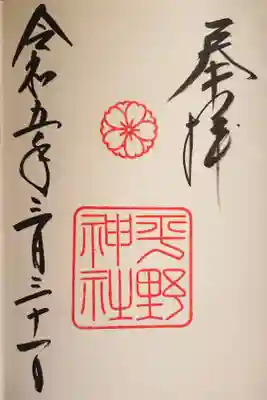 奉拝
平野神社
令和五年三月三十一日